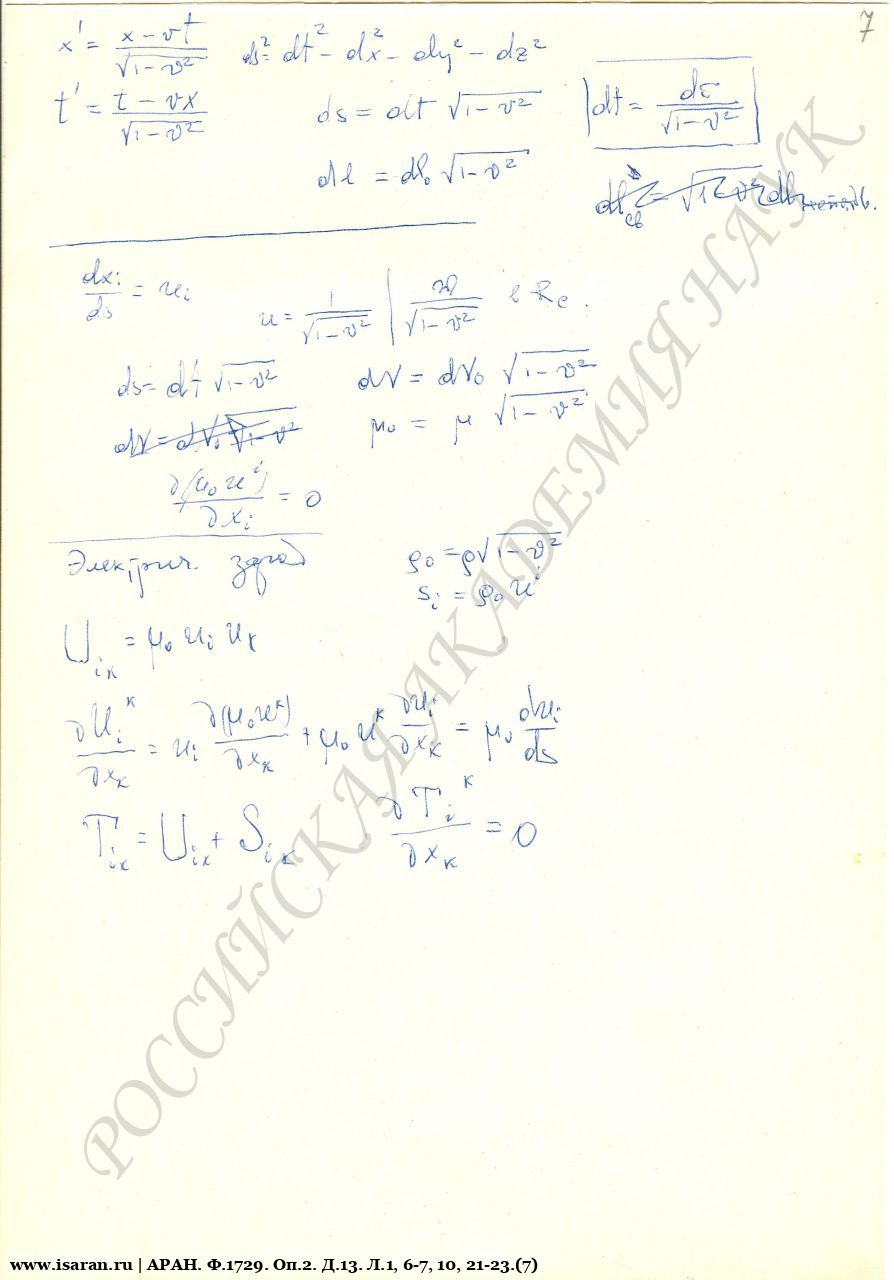 7
x' = (x − vt)/√(1 − v²)   ds² = dt² − dx² − dy² − dz²
t' = (t − vx)/√(1 − v²)   ds = dt √(1 − v²)   | dt = dτ/√(1 − v²) |
dl = dl₀ √(1 − v²)
dxᵢ/ds = uᵢ   u = 1/√(1 − v²) | v/√(1 − v²)
ds = dt √(1 − v²)   dV = dV₀ √(1 − v²)
dV = dV₀ √(1 − v²)   μ₀ = μ √(1 − v²)
∂(μ₀uⁱ)/∂xᵢ = 0
Электрич. заряд   ρ₀ = ρ√(1 − v²)
sᵢ = ρ₀ uⁱ
Uᵢₖ = μ₀ uᵢ uₖ
∂Uᵢᵏ/∂xₖ = uᵢ ∂(μ₀uᵏ)/∂xₖ + μ₀ uᵏ ∂uᵢ/∂xₖ = μ₀ duᵢ/ds
Tᵢₖ = Uᵢₖ + Sᵢₖ   ∂Tᵢᵏ/∂xₖ = 0
РОССИЙСКАЯ АКАДЕМИЯ НАУК
www.isaran.ru | АРАН. Ф.1729. Оп.2. Д.13. Л.1, 6-7, 10, 21-23.(7)